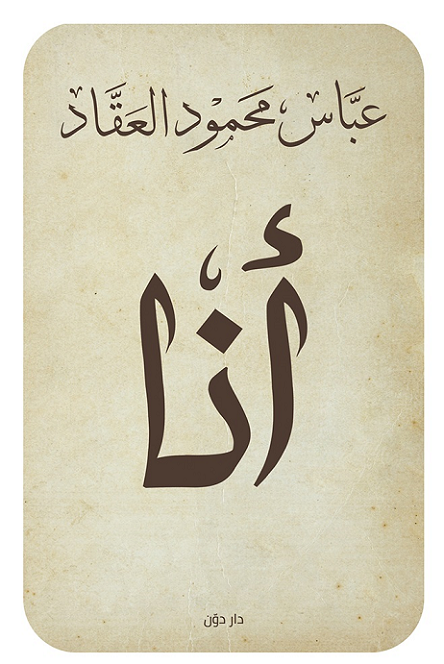 عبَّاس محمود العَقَّاد
أنا
دار دوّن